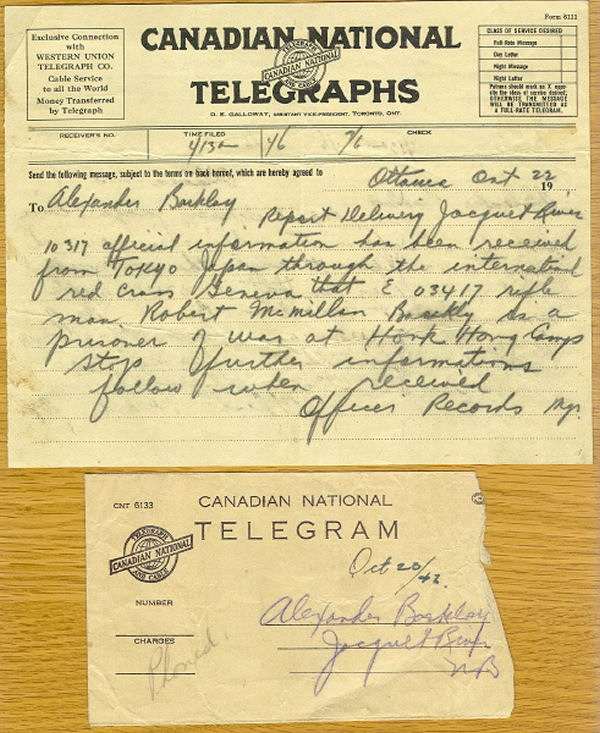 Form 6111
Exclusive Connection
with
WESTERN UNION
TELEGRAPH CO.
Cable Service
to all the World
Money Transferred
by Telegraph
CANADIAN NATIONAL
TELEGRAPH
CANADIAN NATIONAL
AND CABLE
TELEGRAPHS
D. E. GALLOWAY, ASSISTANT VICE-PRESIDENT, TORONTO, ONT.
CLASS OF SERVICE DESIRED
Full-Rate Message
Day Letter
Night Message
Night Letter
Patrons should mark an X oppo-
site the class of service desired;
OTHERWISE THE MESSAGE
WILL BE TRANSMITTED AS
A FULL-RATE TELEGRAM.
RECEIVER'S NO.
TIME FILED
CHECK
Send the following message, subject to the terms on back hereof, which are hereby agreed to
Ottawa Ont 22
19
To Alexander Barklay
Report Delivery Jacquet River
10317 official information has been received
from Tokyo Japan through the
red cross Geneva that E 03417 rifle
man Robert McMillan is a
prisoner of war at Honk Hong Camps
stop further informations
follow when received
Officer Records
CNT 6133
CANADIAN NATIONAL
TELEGRAM
TELEGRAPH
CANADIAN NATIONAL
AND CABLE
Oct 23/42
NUMBER
Alexander Barklay
CHARGES
Jacquet River
NB
Phoned